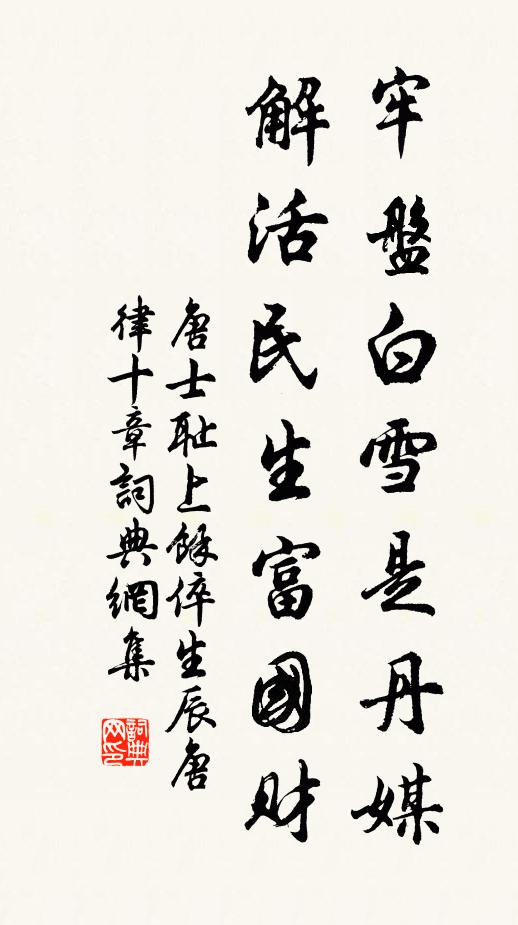 牢盤白雪是丹媒
解活民生富國財
唐士耻上餘倅生辰唐
律十章詞典網集
詞典
网印